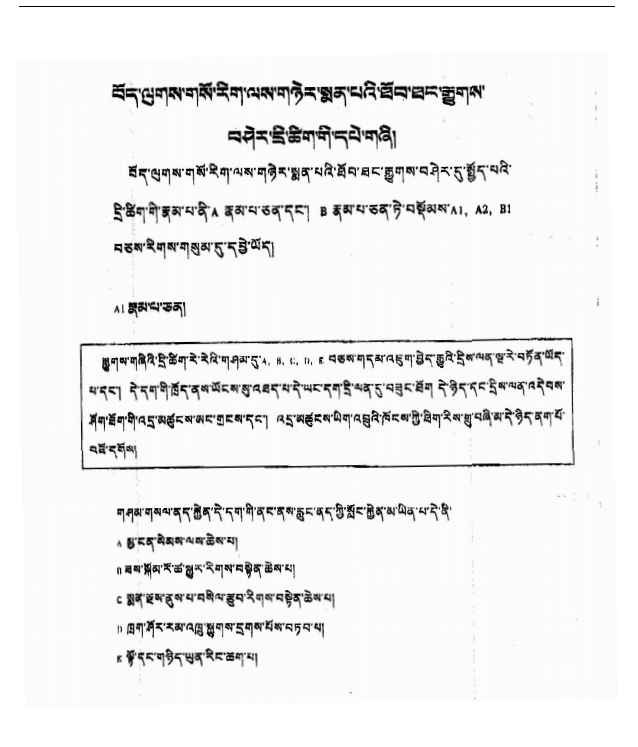 བོད་ལུགས་གསོ་རིག་ལས་གཉེར་སྨན་པའི་ཐོབ་ཐང་རྒྱུགས་
བཤེར་དྲི་ཚིག་གི་དཔེ་གཞི།
བོད་ལུགས་གསོ་རིག་ལས་གཉེར་སྨན་པའི་ཐོབ་ཐང་རྒྱུགས་བཤེར་དུ་སྤྱོད་པའི་
དྲི་ཚིག་གི་རྣམ་པ་ནི་A རྣམ་པ་ཅན་དང་། B རྣམ་པ་ཅན་ཏེ་བསྡོམས་A1, A2, B1
བཅས་རིགས་གསུམ་དུ་དབྱེ་ཡོད།
A1 རྣམ་པ་ཅན།
རྒྱུགས་གཞིའི་དྲི་ཚིག་རེ་རེའི་གཤམ་དུ་A, B, C, D, E བཅས་གདམ་འཇུག་བྱེད་རྒྱུའི་དྲིས་ལན་ལྔ་རེ་བཏོན་ཡོད་
པ་དང་། དེ་དག་གི་ཁྲོད་ནས་ཡོངས་སུ་འཐད་པ་དེ་ཡང་དག་དྲི་ལན་དུ་བཟུང་ཐོག དེ་ཉིད་དང་དྲིས་ལན་འདེབས་
ཤོག་ཐོག་གི་འདྲ་མཚུངས་ཨང་གྲངས་དང་། འདྲ་མཚུངས་ཡིག་འབྲུའི་ཁོངས་ཀྱི་ཐིག་རིས་གྲུ་བཞི་མ་དེ་ཉིད་ནག་པོ་
བཟོ་དགོས།
གཤམ་གསལ་ནད་རྐྱེན་དེ་དག་གི་ནང་ནས་རླུང་ནད་ཀྱི་སློང་རྐྱེན་མ་ཡིན་པ་དེ་ནི་
A མྱ་ངན་སེམས་ལས་ཆེས་པ།
B ཟས་སྐོམ་རོ་ཚ་སྐྱུར་རིགས་བསྟེན་ཆེས་པ།
C སྨན་རྫས་ནུས་པ་བསིལ་རྩུབ་རིགས་བསྟེན་ཆེས་པ།
D ཁྲག་ཤོར་རམ་འཁྲུ་སྐྱུགས་དྲགས་པོས་བཏབ་པ།
E ལྟོ་དང་གཉིད་ཡུན་རིང་ཆག་པ།